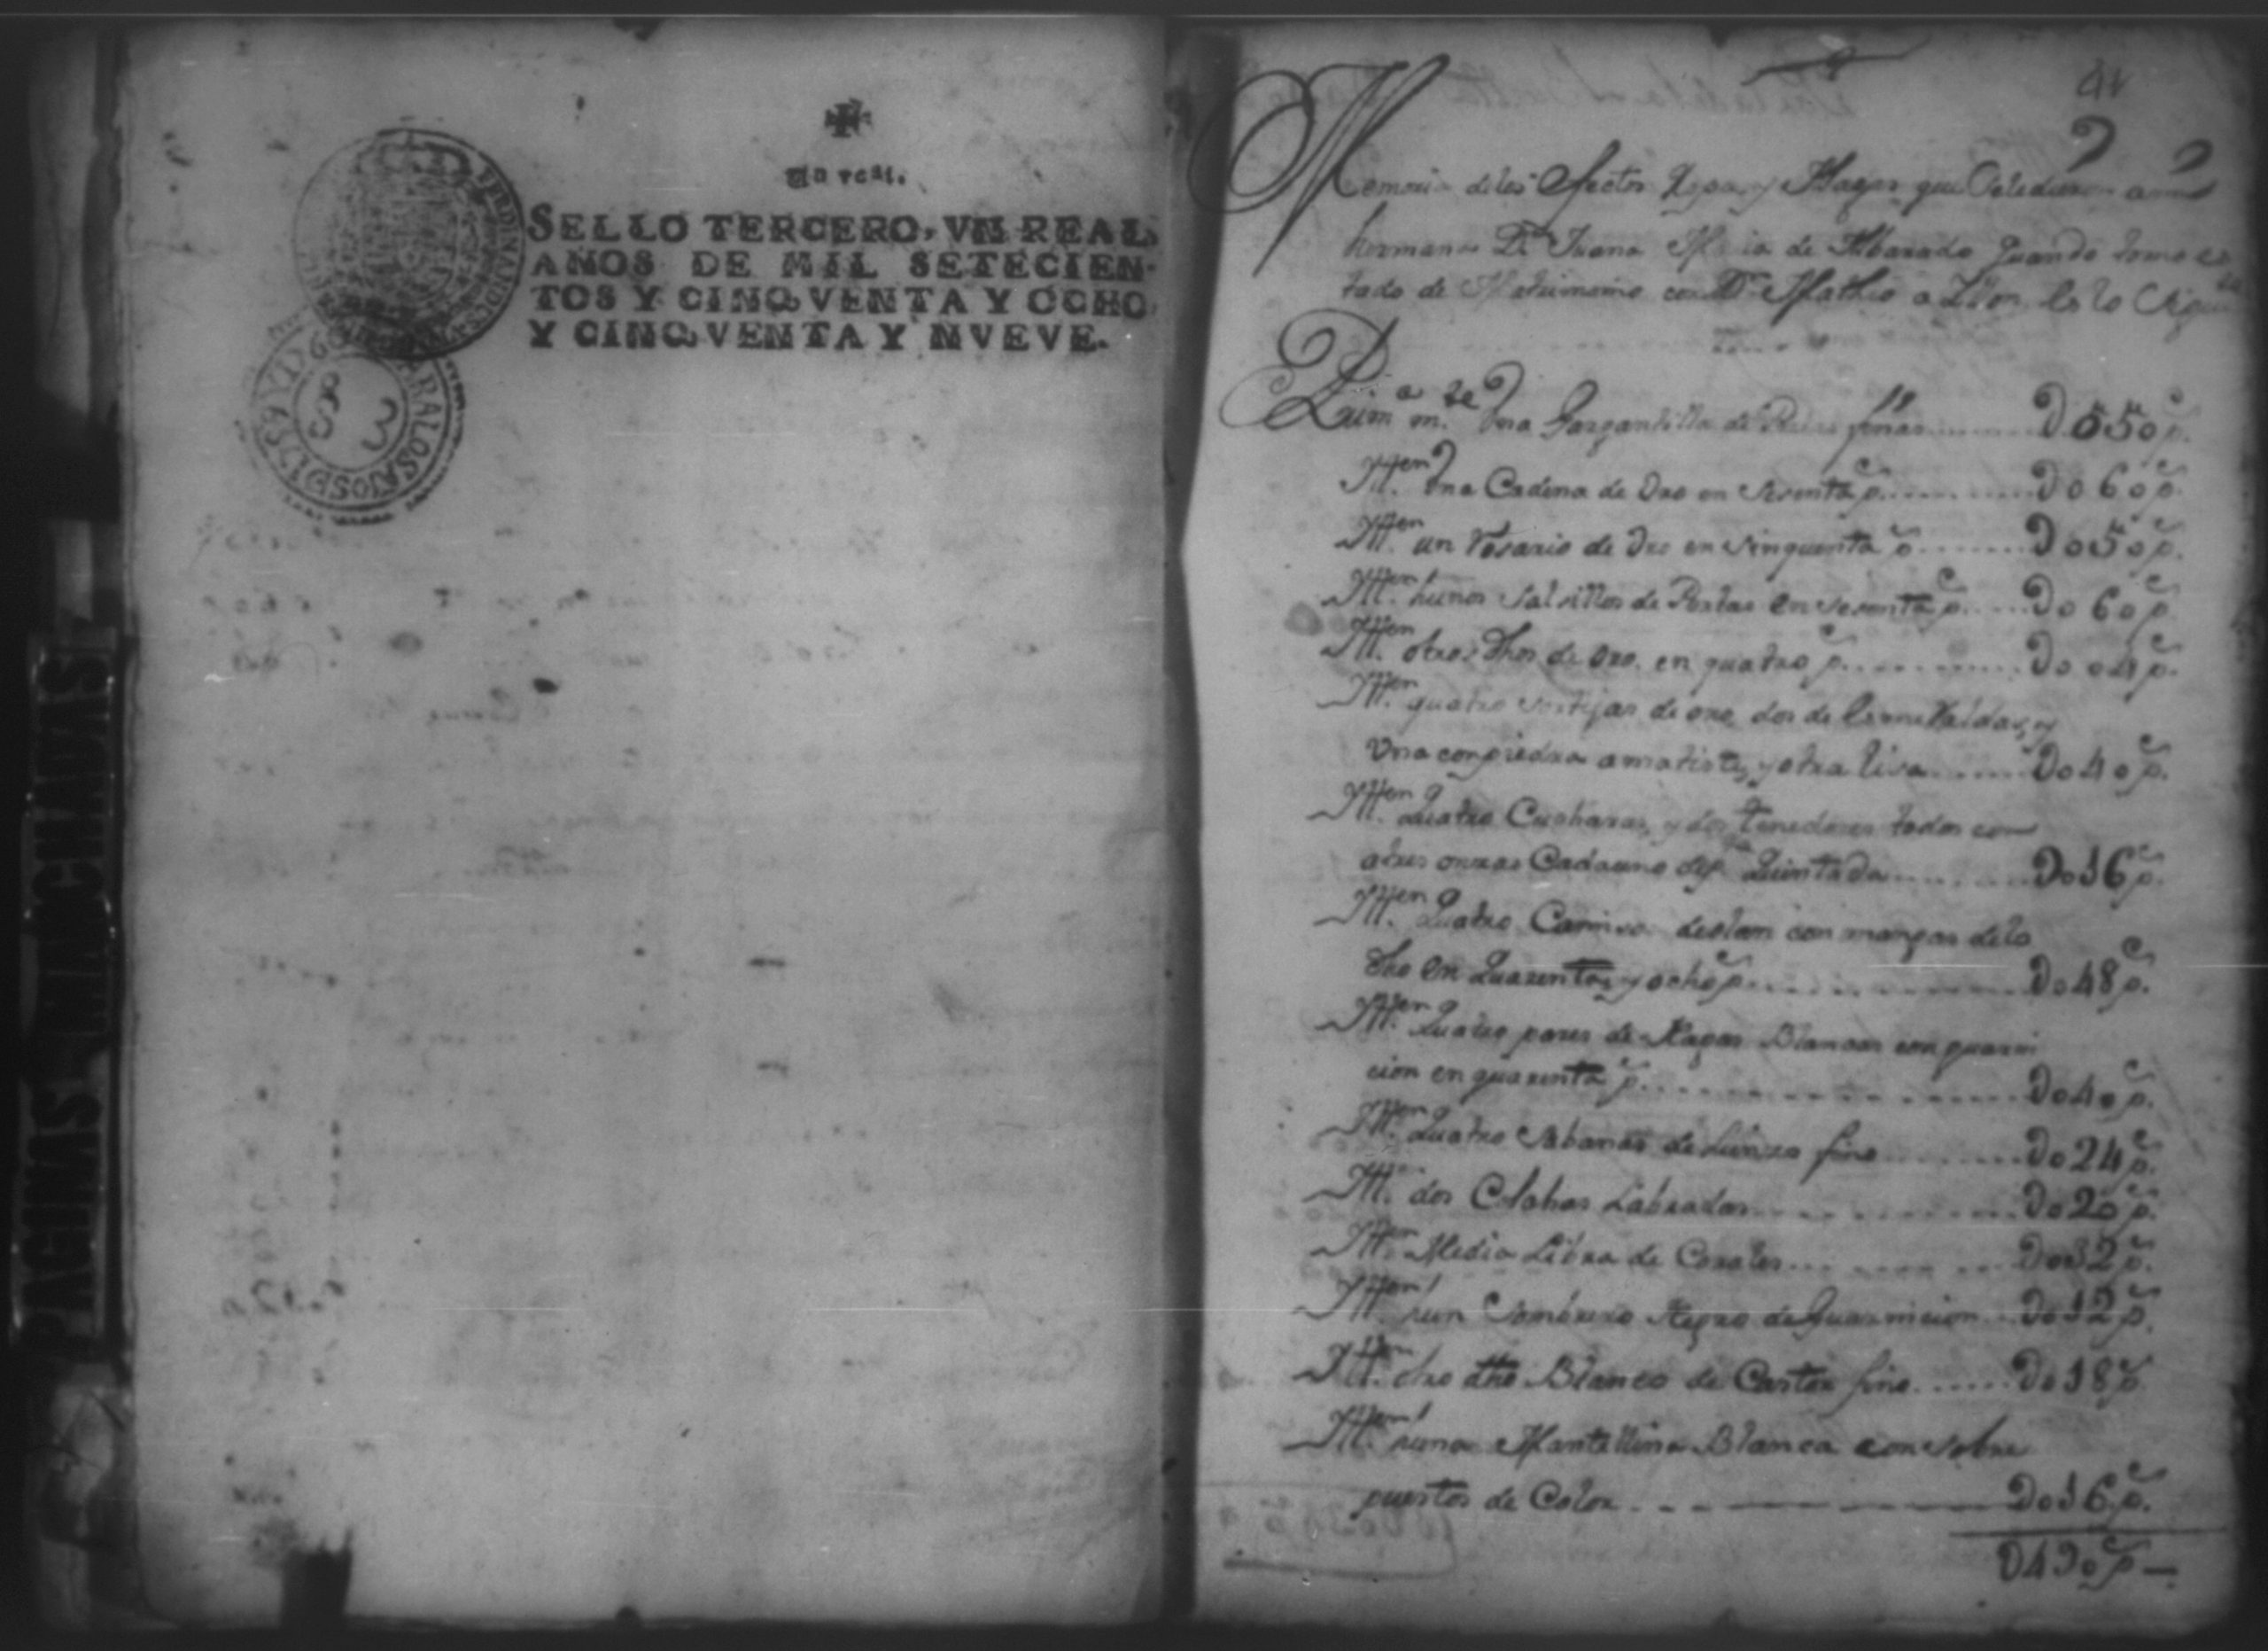 Un real.
SELLO TERCERO, VN REAL,
AÑOS DE MIL SETECIEN-
TOS Y CINQVENTA Y OCHO,
Y CINQVENTA Y NVEVE.
PAGINAS MANCHADAS
41
2
Memoria delos Efectos Ropa y Alajas que
hermana Da Juana Maria de Albarado quando tomo es
tado de Matrimonio con Dn Matheo
Primeramte Vna Gargantilla de Perlas finas D 050 ps
Ytten Vna Cadena de Oro en sesenta ps D 060 ps
Ytten un Rosario de Oro en sinquenta ps D 050 ps
Ytten hunos Salsillos de Perlas en sesenta ps D 060 ps
Ytten otros dhos de oro en quatro ps D 004 ps
Ytten quatro sortijas de oro dos de Esmeraldas, y
Vna con piedra amatista, y otra lisa D 040 ps
Ytten Quatro Cucharas, y dos tenedores todos con
atres onzas Cadauno Quintada D 016 ps
Ytten Quatro Camisas deolan con mangas delo
dho en Quarenta, y ocho ps D 048 ps
Ytten Quatro pares de Nagas Blancas con guarni
cion en quarenta ps D 040 ps
Ytten Quatro Sabanas de Lienzo fino D 024 ps
Ytten dos Colchas Labradas D 020 ps
Ytten Media Libra de Corales D 032 ps
Ytten un Sombrero Negro de Guarnicion D 012 ps
Ytten otro dho Blanco de Castor fino D 018 ps
Ytten una Mantellina Blanca con sobre
puestos de Color D 016 ps